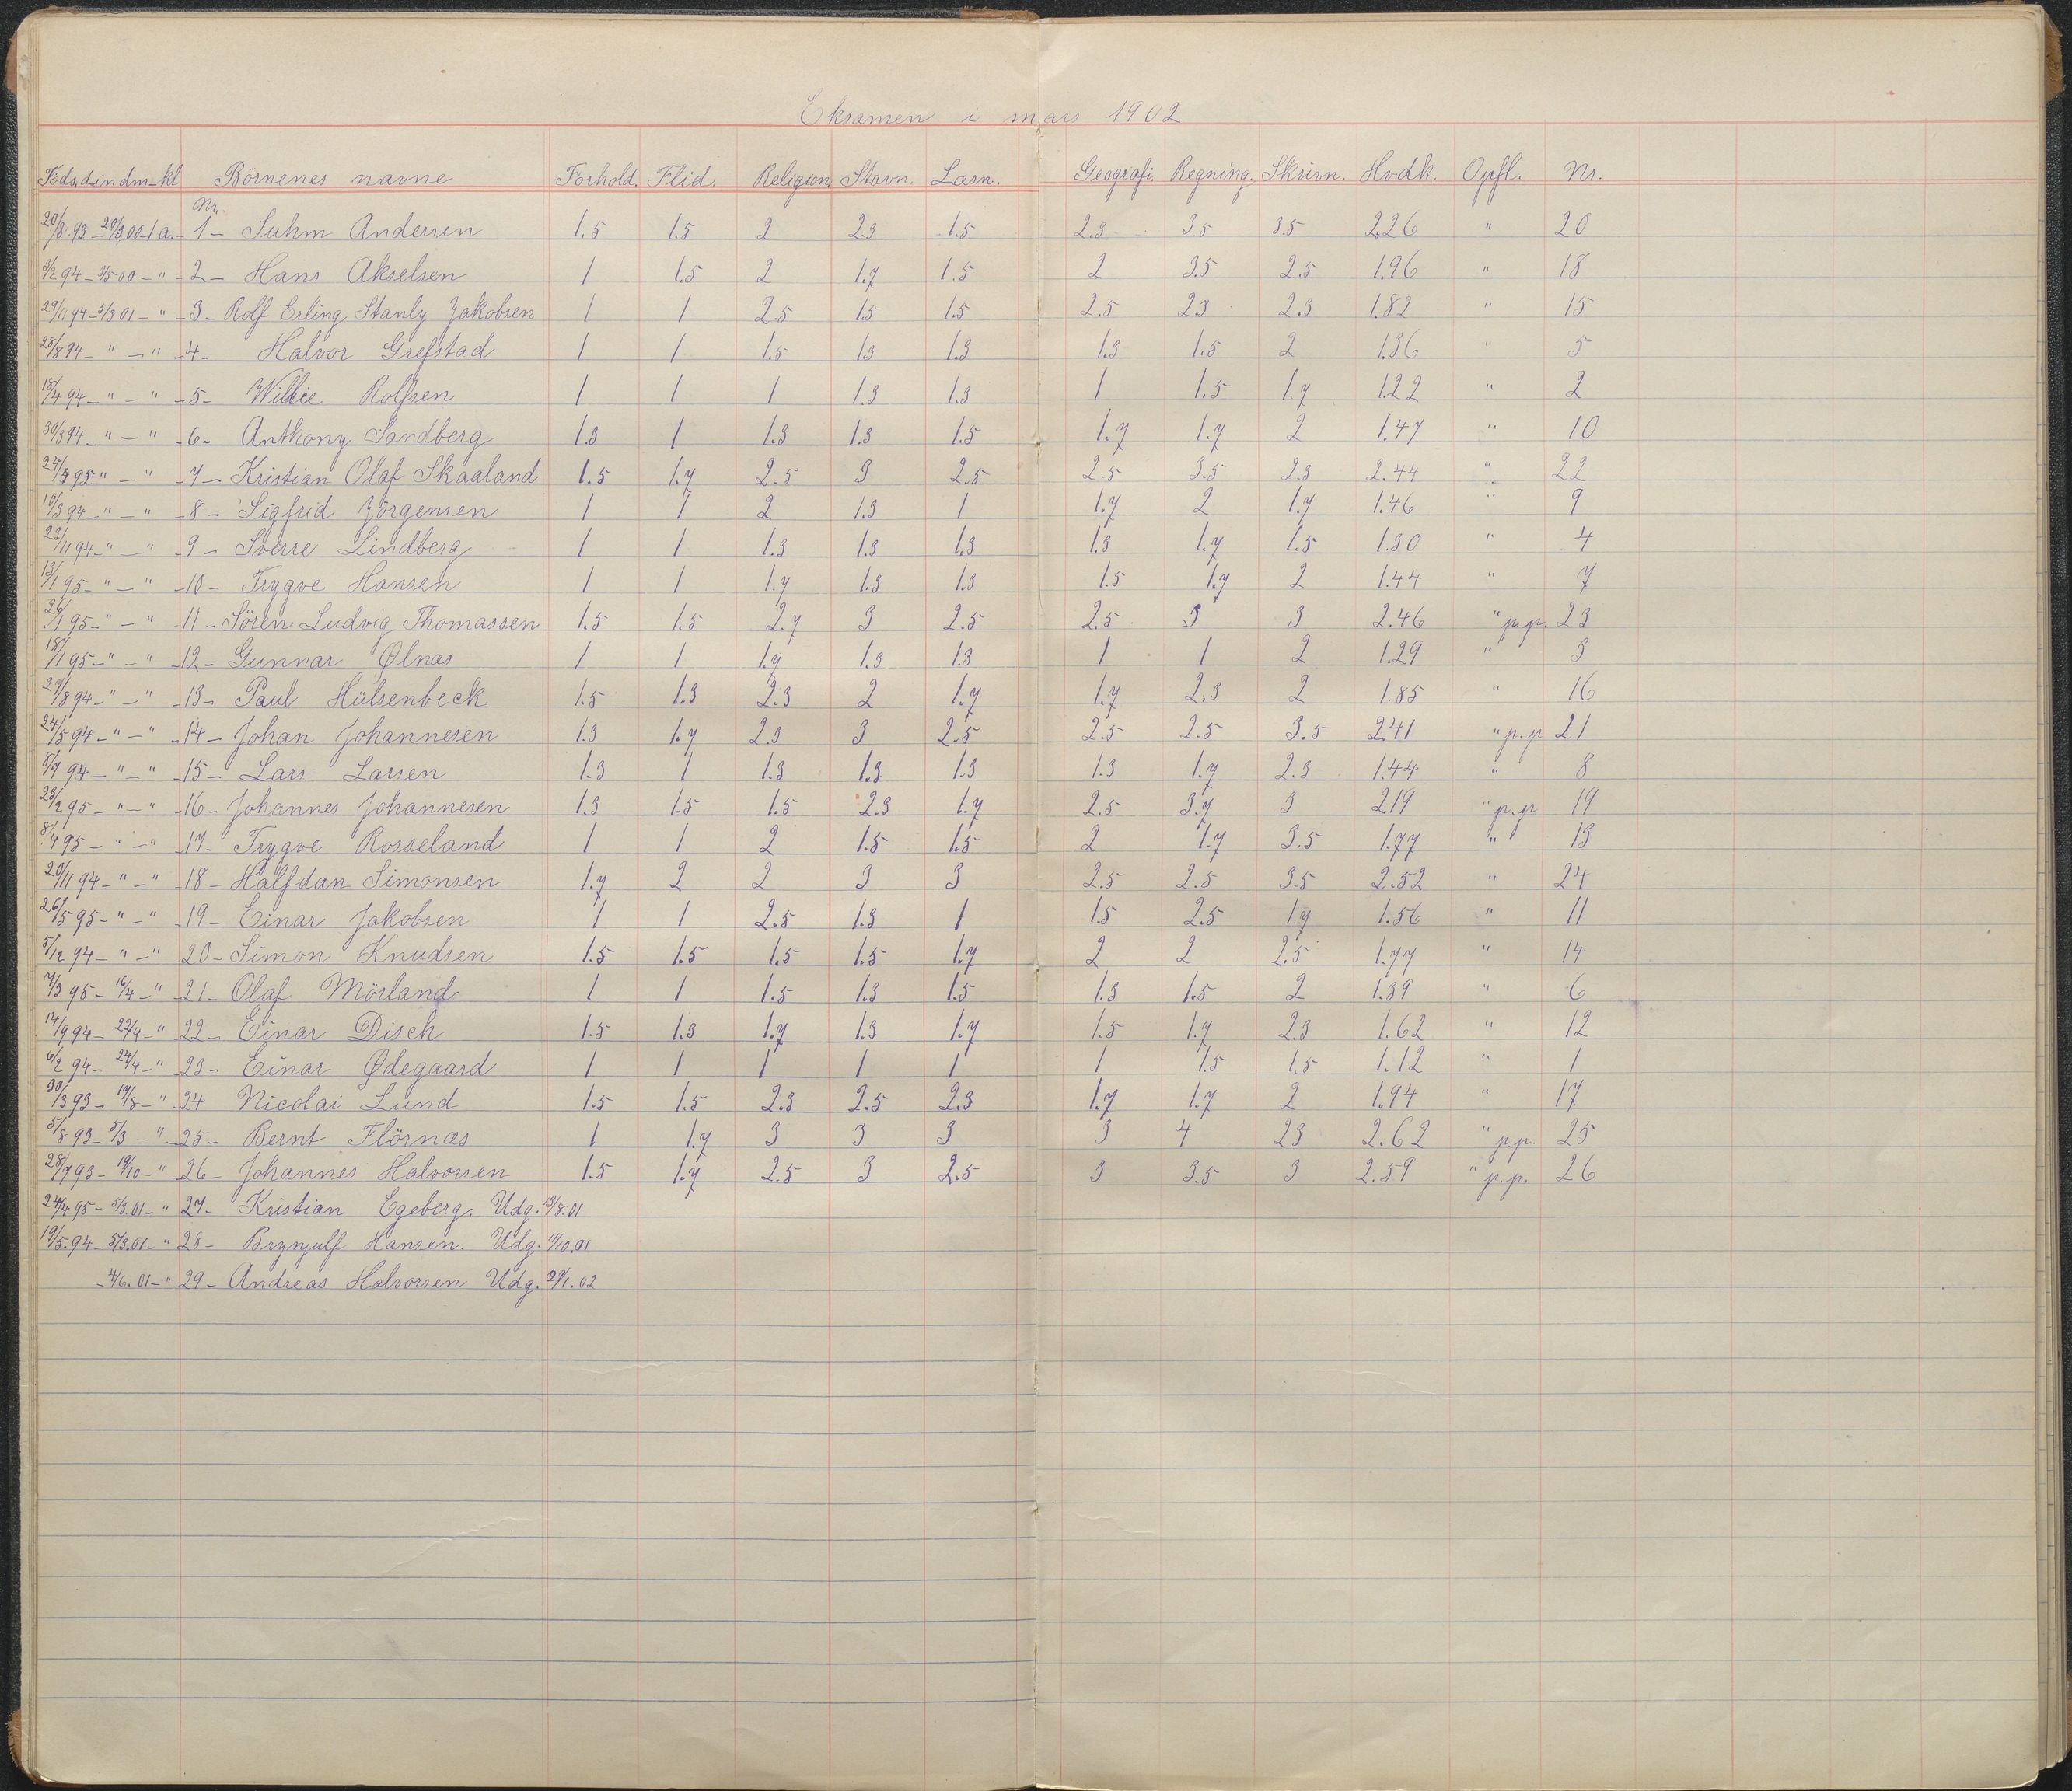 Eksamen i mars 1902
Föds.d. indm. kl. Börnenes navne Forhold. Flid. Religion Stavn. Læsn. Geografi. Regning. Skrivn. Hvdk. Opfl. Nr.
Nr.
20/8.93 - 20/3 00 - 1 a. - 1 - Suhm Andersen 1.5 1.5 2 2.3 1.5 2.3 3.5 3.5 2.26 " 20
3/2 94 - 3/5 00 - " - 2 - Hans Akselsen 1 1.5 2 1.7 1.5 2 3.5 2.5 1.96 " 18
29/11 94 - 5/3 01 - " - 3 - Rolf Erling Stanly Jakobsen 1 1 2.5 1.5 1.5 2.5 2.3 2.3 1.82 " 15
28/8 94 - " - " - 4 - Halvor Grefstad 1 1 1.5 1.3 1.3 1.3 1.5 2 1.36 " 5
15/4 94 - " - " - 5 - Willie Rolfsen 1 1 1 1.3 1.3 1 1.5 1.7 1.22 " 2
30/3 94 - " - " - 6 - Anthony Sandberg 1.3 1 1.3 1.3 1.5 1.7 1.7 2 1.47 " 10
24/4 95 " - " - 7 - Kristian Olaf Skaaland 1.5 1.7 2.5 3 2.5 2.5 3.5 2.3 2.44 " 22
10/3 94 - " - " - 8 - Sigfrid Jörgensen 1 1 2 1.3 1 1.7 2 1.7 1.46 " 9
23/11 94 - " - " - 9 - Sverre Lindberg 1 1 1.3 1.3 1.3 1.3 1.7 1.5 1.30 " 4
13/1 95 - " - " - 10 - Trygve Hansen 1 1 1.7 1.3 1.3 1.5 1.7 2 1.44 " 7
26/1 95 - " - " - 11 - Sören Ludvig Thomassen 1.5 1.5 2.7 3 2.5 2.5 3 3 2.46 " p.p. 23
18/1 95 - " - " - 12 - Gunnar Ølnæs 1 1 1.7 1.3 1.3 1 1 2 1.29 " 3
27/8 94 - " - " - 13 - Paul Hülsenbeck 1.5 1.3 2.3 2 1.7 1.7 2.3 2 1.85 " 16
24/5 94 - " - " - 14 - Johan Johannesen 1.3 1.7 2.3 3 2.5 2.5 2.5 3.5 2.41 " p.p 21
8/7 94 - " - " - 15 - Lars Larsen 1.3 1 1.3 1.3 1.3 1.3 1.7 2.3 1.44 " 8
23/2 95 - " - " - 16 - Johannes Johannesen 1.3 1.5 1.5 2.3 1.7 2.5 3.7 3 2.19 " p.p 19
8/4 95 - " - " - 17 - Trygve Rosseland 1 1 2 1.5 1.5 2 1.7 3.5 1.77 " 13
20/11 94 - " - " - 18 - Halfdan Simonsen 1.7 2 2 3 3 2.5 2.5 3.5 2.52 " 24
26/5 95 - " - " - 19 - Einar Jakobsen 1 1 2.5 1.3 1 1.5 2.5 1.7 1.56 " 11
5/12 94 - " - " 20 - Simon Knudsen 1.5 1.5 1.5 1.5 1.7 2 2 2.5 1.77 " 14
7/3 95 - 16/4 - " - 21 - Olaf Mörland 1 1 1.5 1.3 1.5 1.3 1.5 2 1.39 " 6
14/9 94 - 22/4 - " 22 - Einar Disch 1.5 1.3 1.7 1.3 1.7 1.5 1.7 2.3 1.62 " 12
6/2 94 - 24/4 - " 23 - Einar Ødegaard 1 1 1 1 1 1 1.5 1.5 1.12 " 1
30/3 93 - 19/8 - " - 24 Nicolai Lund 1.5 1.5 2.3 2.5 2.3 1.7 1.7 2 1.94 " 17
5/8 93 - 5/3 - " - 25 - Bernt Flörnæs 1 1.7 3 3 3 3 4 2.3 2.62 " p.p. 25
28/7 93 - 19/10 - " - 26 - Johannes Halvorsen 1.5 1.7 2.5 3 2.5 3 3.5 3 2.59 " p.p. 26
24/4 95 - 5/3.01 - " 27 - Kristian Egeberg. Udg. 13/8.01
19/5.94 - 5/3.01 - " 28 - Brynjulf Hansen. Udg. 11/10.01
- 4/6.01 - " 29 - Andreas Halvorsen Udg. 29/1.02